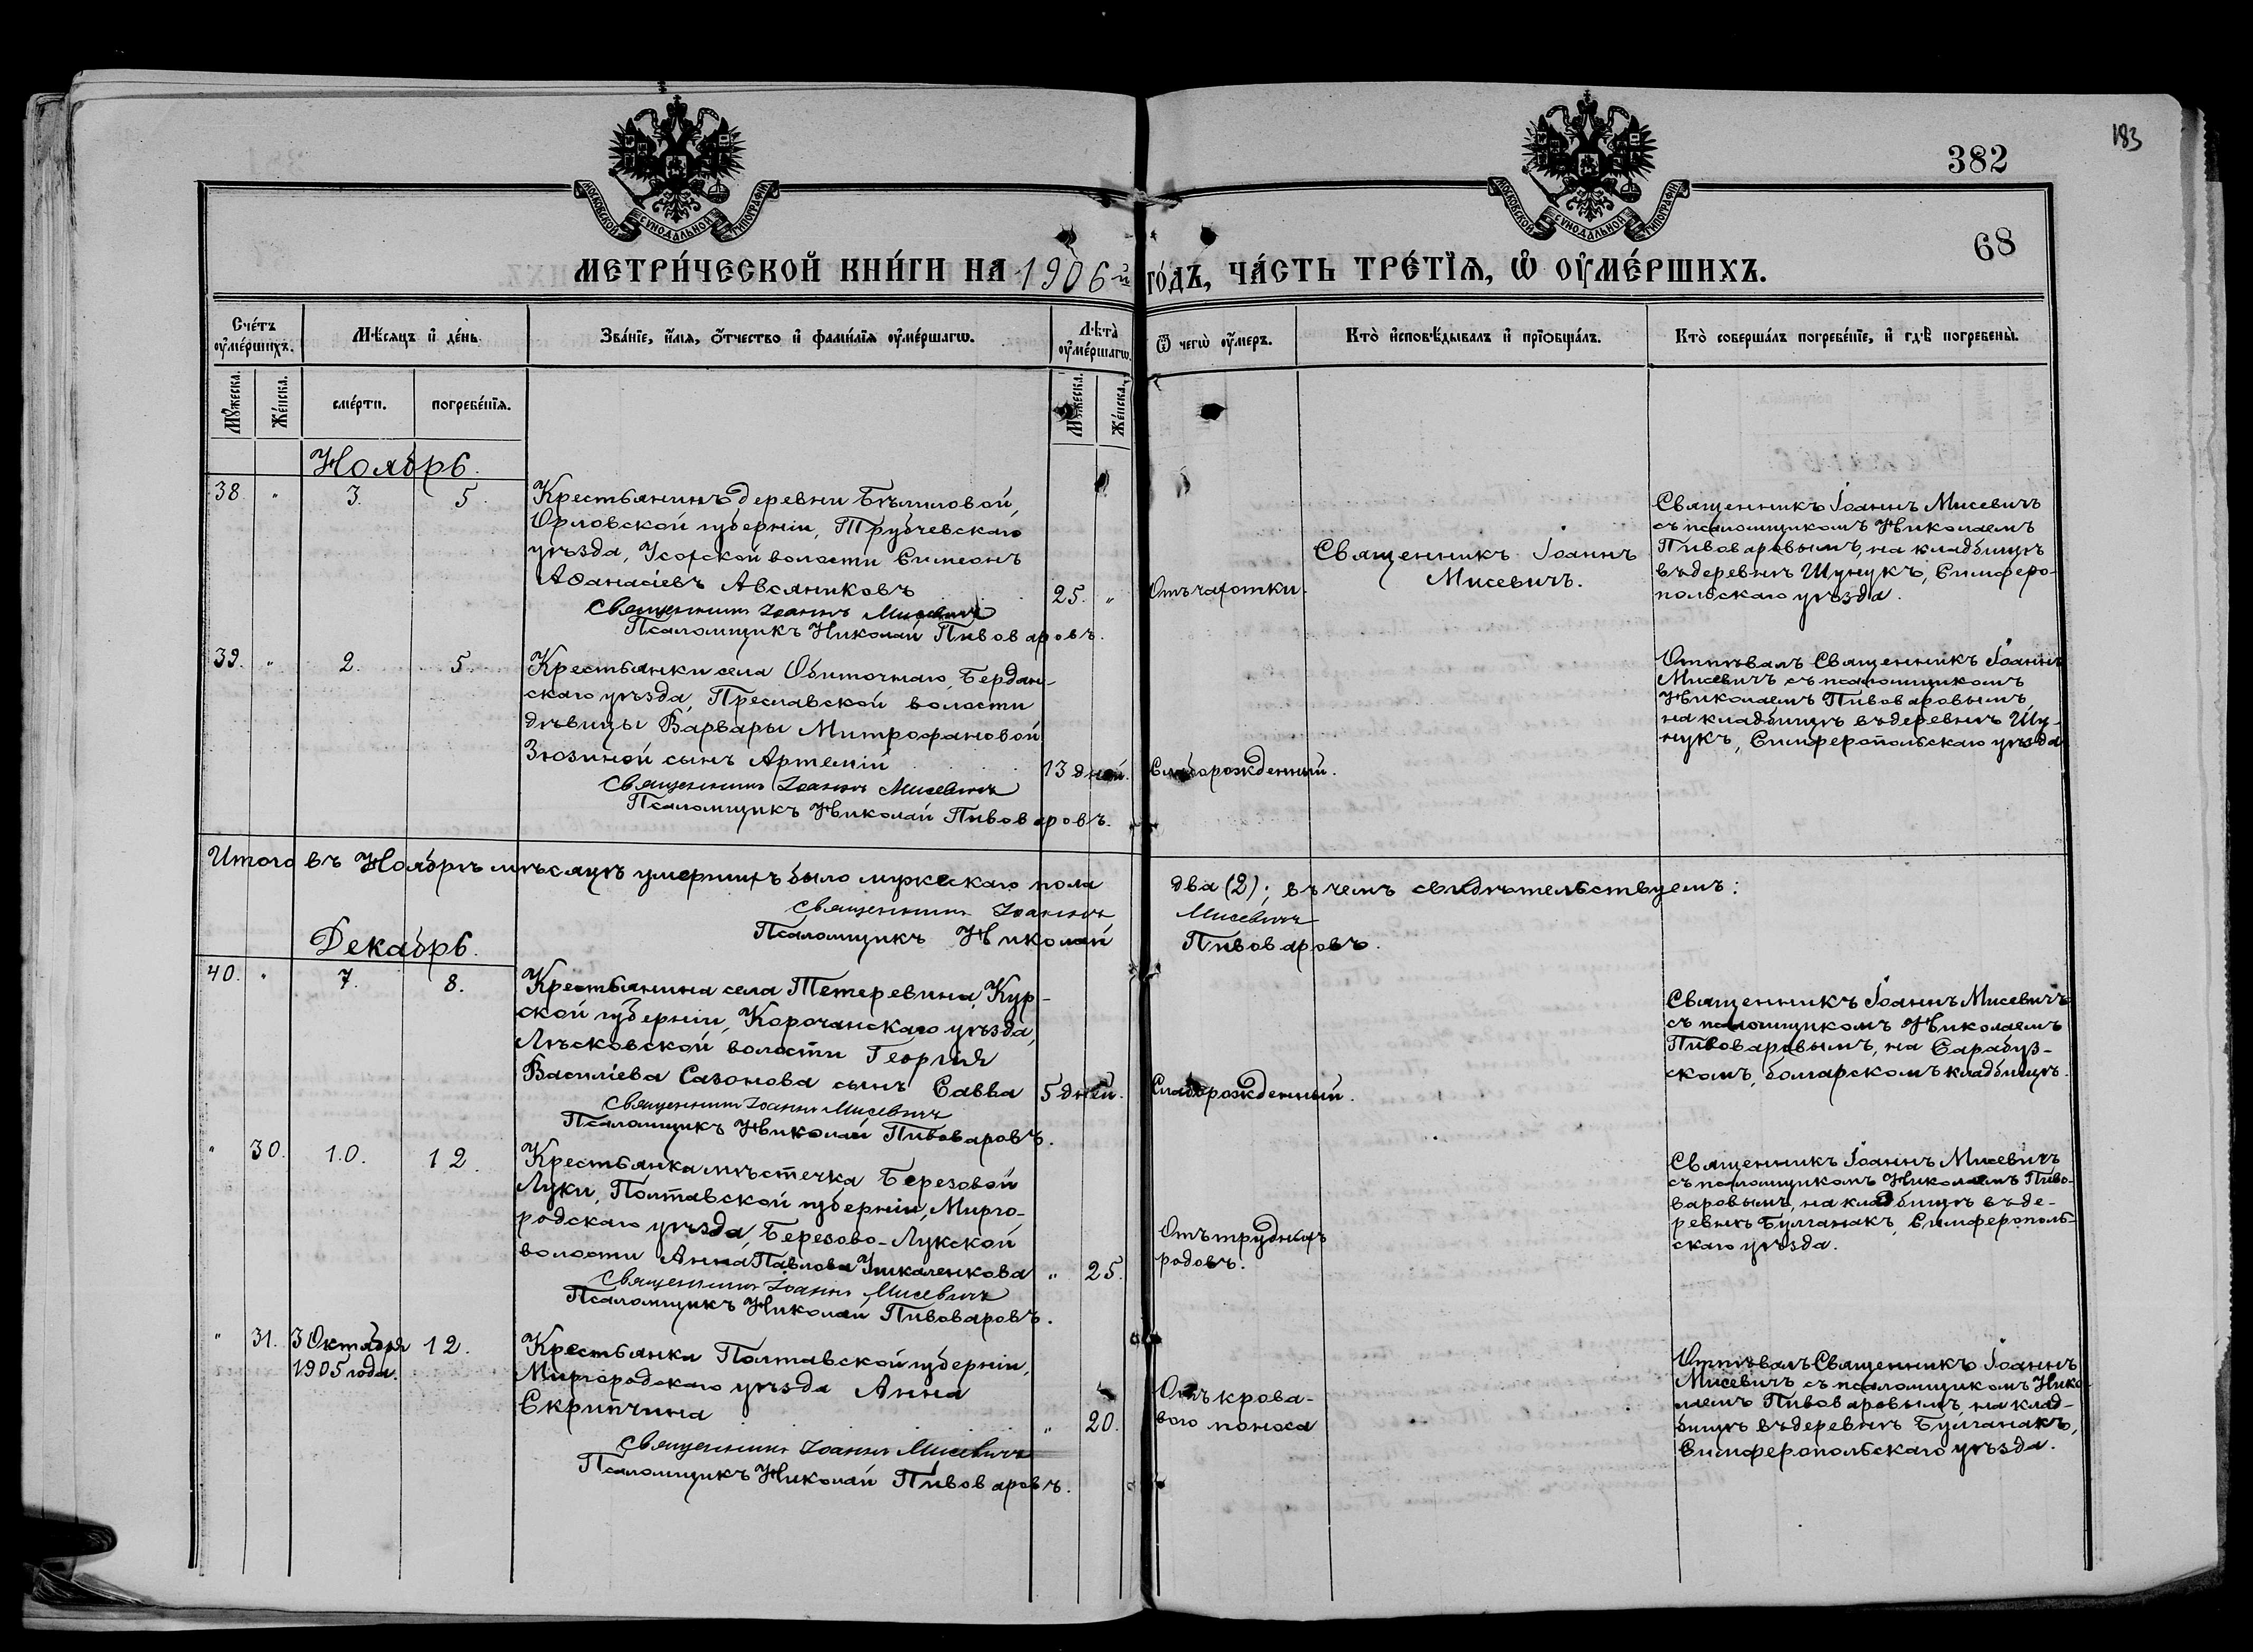 183
382
68
МОСКОВСКОЙ СѴНОДАЛЬНОЙ ТИПОГРАФІИ
МОСКОВСКОЙ СѴНОДАЛЬНОЙ ТИПОГРАФІИ
МЕТРИ́ЧЕСКОЙ КНИ́ГИ НА 1906й ГО́ДЪ, ЧА́СТЬ ТРЕ́ТІѦ, Ѡ ОУ҆МЕ́РШИХЪ.
Сче́тъ оу҆ме́ршихъ.
Мꙋ́жеска.
Же́нска.
Мѣ́сяцъ и҆ де́нь
сме́рти.
погребе́нїѧ.
Зва́нїе, и҆́мѧ, ѻ҆́тчество и҆ фами́лїѧ оу҆ме́ршагѡ.
Лѣта̀ оу҆ме́ршагѡ.
Мꙋ́жеска.
Же́нска.
Ѿ чегѡ̀ оу҆́меръ.
Кто̀ и҆сповѣ́дывалъ и҆ прїѡбща́лъ.
Кто̀ соверша́лъ погребе́нїе, и҆ гдѣ̀ погребены̀.
Ноябрь.
38. " 3. 5.
Крестьянинъ деревни
Орловской губерніи, Трубчевскаго
уѣзда, Усохской волости Симеонъ
Аѳанасіевъ Авсяниковъ
25. "
Священникъ Іоаннъ Мисевичъ
Псаломщикъ Николай Пивоваровъ.
Отъ чахотки.
Священникъ Іоаннъ
Мисевичъ.
Священникъ Іоаннъ Мисевичъ
съ псаломщикомъ Николаемъ
Пивоваровымъ, на кладбищѣ
въ деревнѣ Шунукъ, Симферо-
польскаго уѣзда.
39. " 2. 5.
Крестьянки села Обиточнаго, Бердян-
скаго уѣзда, Преславской волости
дѣвицы Варвары Митрофановой
Зюзиной сынъ Артемій
13 дней.
Священникъ Іоаннъ Мисевичъ
Псаломщикъ Николай Пивоваровъ.
Слаборожденный.
Отпѣвалъ Священникъ Іоаннъ
Мисевичъ съ псаломщикомъ
Николаемъ Пивоваровымъ
на кладбищѣ въ деревнѣ Шу-
нукъ, Симферопольскаго уѣзда
Итого въ Ноябрѣ мѣсяцѣ умершихъ было мужескаго пола два (2); въ чемъ свидѣтельствуемъ:
Священникъ Іоаннъ Мисевичъ
Псаломщикъ Николай Пивоваровъ.
Декабрь.
40. " 7. 8.
Крестьянина села Тетеревина, Кур-
ской губерніи, Корочанскаго уѣзда,
Лѣсковской волости Георгія
Василіева Сазонова сынъ Савва
5 дней.
Священникъ Іоаннъ Мисевичъ
Псаломщикъ Николай Пивоваровъ.
Слаборожденный.
Священникъ Іоаннъ Мисевичъ
съ псаломщикомъ Николаемъ
Пивоваровымъ, на Сарабуз-
скомъ, болгарскомъ кладбищѣ.
" 30. 10. 12.
Крестьянка мѣстечка Березовой
Луки, Полтавской губерніи, Мирго-
родскаго уѣзда, Березово-Лукской
волости Анна Павлова
" 25.
Священникъ Іоаннъ Мисевичъ
Псаломщикъ Николай Пивоваровъ.
Отъ трудныхъ
родовъ.
Священникъ Іоаннъ Мисевичъ
съ псаломщикомъ Николаемъ Пиво-
варовымъ, на кладбищѣ въ де-
ревнѣ Булганакъ, Симферополь-
скаго уѣзда.
" 31. 3 Октября 12.
1905 года.
Крестьянка Полтавской губерніи,
Миргородскаго уѣзда Анна
Скрипчина
" 20.
Священникъ Іоаннъ Мисевичъ
Псаломщикъ Николай Пивоваровъ.
Отъ крова-
вого поноса
Отпѣвалъ Священникъ Іоаннъ
Мисевичъ съ псаломщикомъ Нико-
лаемъ Пивоваровымъ на клад-
бищѣ въ деревнѣ Булганакъ,
Симферопольскаго уѣзда.